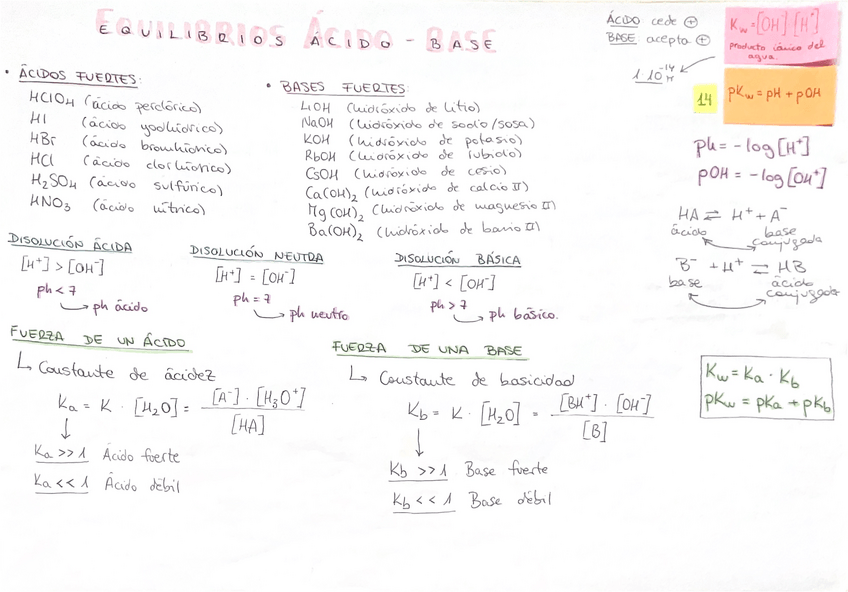 EQUILIBRIOS ÁCIDO - BASE
EQUILIBRIOS ÁCIDO - BASE
ÁCIDO cede ⊕
BASE: acepta ⊕
Kw = [OH⁻] [H⁺]
producto iónico del
agua.
1·10⁻¹⁴
14
pKw = pH + pOH
ph = -log[H⁺]
pOH = -log[OH⁻]
HA ⇌ H⁺ + A⁻
ácido base
conjugada
B⁻ + H⁺ ⇌ HB
base ácido
conjugada
• ÁCIDOS FUERTES:
HClO₄ (ácido perclórico)
HI (ácido yodhídrico)
HBr (ácido bromhídrico)
HCl (ácido clorhídrico)
H₂SO₄ (ácido sulfúrico)
HNO₃ (ácido nítrico)
• BASES FUERTES:
LiOH (hidróxido de litio)
NaOH (hidróxido de sodio/sosa)
KOH (hidróxido de potasio)
RbOH (hidróxido de rubidio)
CsOH (hidróxido de cesio)
Ca(OH)₂ (hidróxido de calcio II)
Mg(OH)₂ (hidróxido de magnesio II)
Ba(OH)₂ (hidróxido de bario II)
DISOLUCIÓN ÁCIDA
[H⁺] > [OH⁻]
ph < 7
ph ácido
DISOLUCIÓN NEUTRA
[H⁺] = [OH⁻]
ph = 7
ph neutro
DISOLUCIÓN BÁSICA
[H⁺] < [OH⁻]
ph > 7
ph básico.
FUERZA DE UN ÁCIDO
↳ Constante de ácidez
Ka = K · [H₂O] = [A⁻] · [H₃O⁺] / [HA]
Ka >> 1 Ácido fuerte
Ka << 1 Ácido débil
FUERZA DE UNA BASE
↳ Constante de basicidad
Kb = K · [H₂O] = [BH⁺] · [OH⁻] / [B]
Kb >> 1 Base fuerte
Kb << 1 Base débil
Kw = Ka · Kb
pKw = pKa + pKb